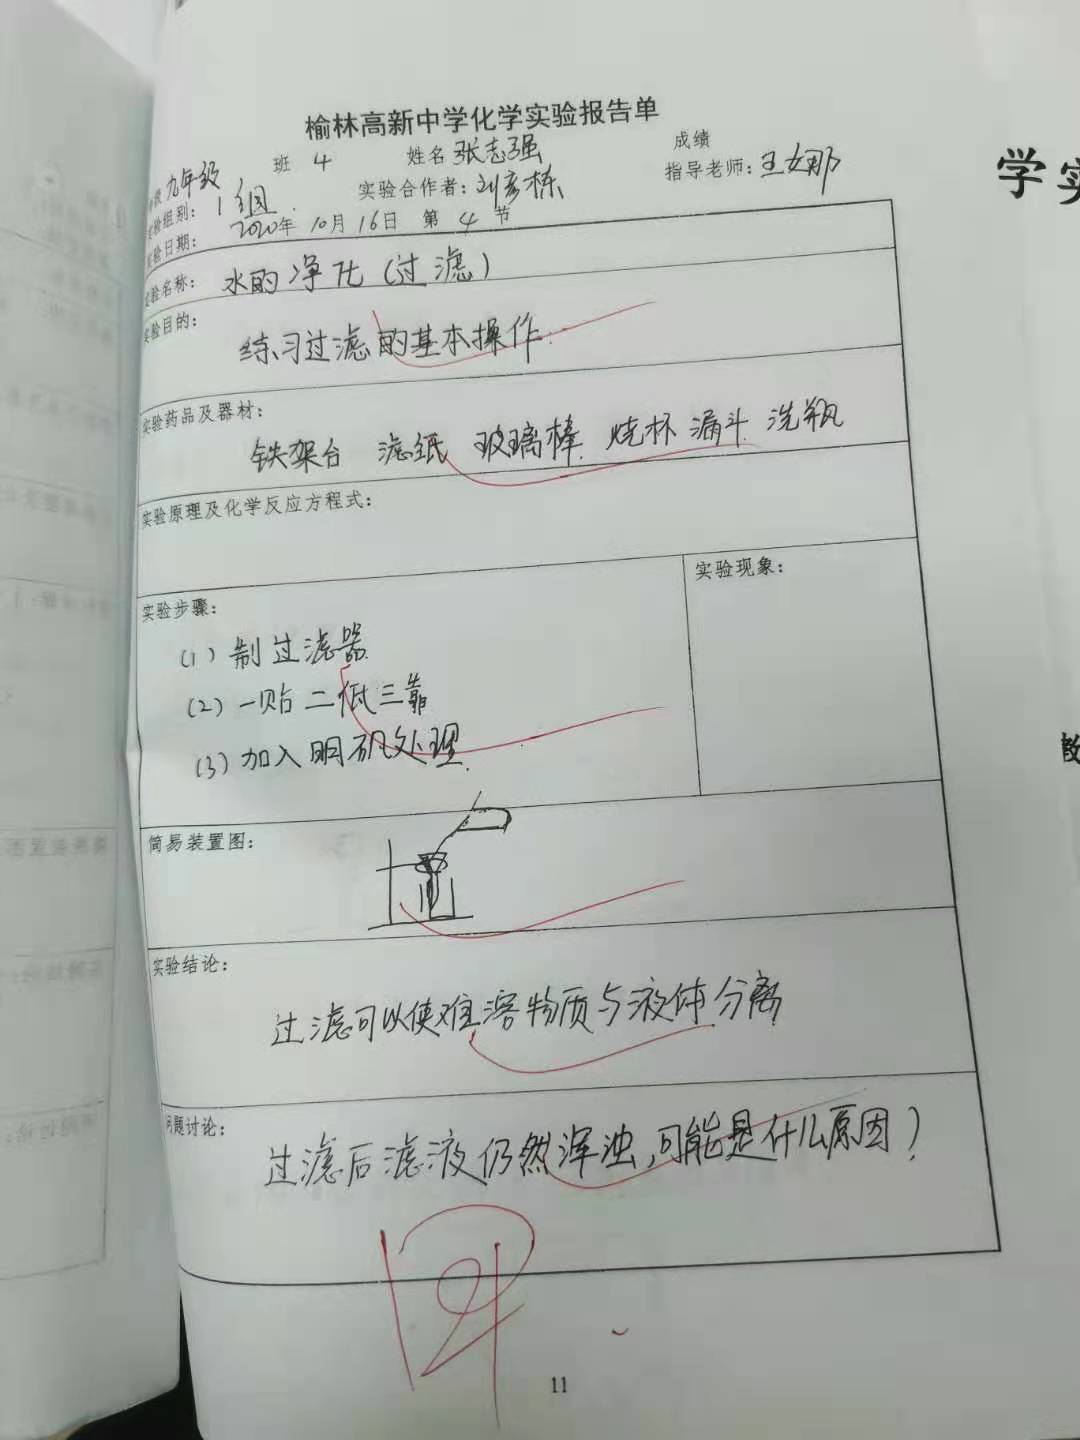 榆林高新中学化学实验报告单
级 九年级 班 4 姓名 张志强 成绩
验组别： 1组 实验合作者：刘彦栋 指导老师：王娜
验日期： 2020年 10月 16日 第 4 节
验名称： 水的净化（过滤）
实验目的：
练习过滤的基本操作.
实验药品及器材：
铁架台 滤纸 玻璃棒 烧杯 漏斗 洗瓶
实验原理及化学反应方程式：
实验步骤：
实验现象：
(1) 制过滤器
(2) 一贴二低三靠
(3) 加入明矾处理.
简易装置图：
实验结论：
过滤可以使难溶物质与液体分离
问题讨论：
过滤后滤液仍然浑浊,可能是什么原因?
11
学实